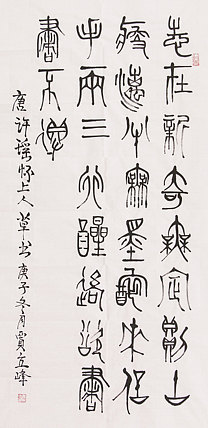 志在新奇無定則古
瘦漓半無墨醉來信
手兩三行醒後卻書
書不得
唐许瑶怀上人草书庚子冬月贾立峰